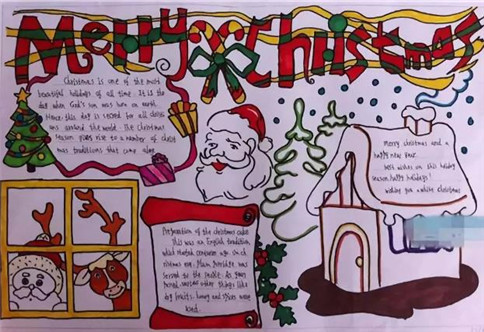 Merry Christmas
Christmas is one of the most
beautiful holidays of all time. It is the
day when God's son was born on earth.
Hence this day is sacred for all christi
ans around the world. The Christmas
season gives rise to a number of christ
mas traditions that come along
Merry christmas and a
happy new year.
best wishes on this holiday
season. happy holidays!
wishing you a white christmas
Preparation of the christmas cakes
This was an English tradition,
which started centuries ago. On ch
ristmas eve, Plum Porridge was
served to the people. As years
passed, various other things like
dry fruits, honey and spices were
used.